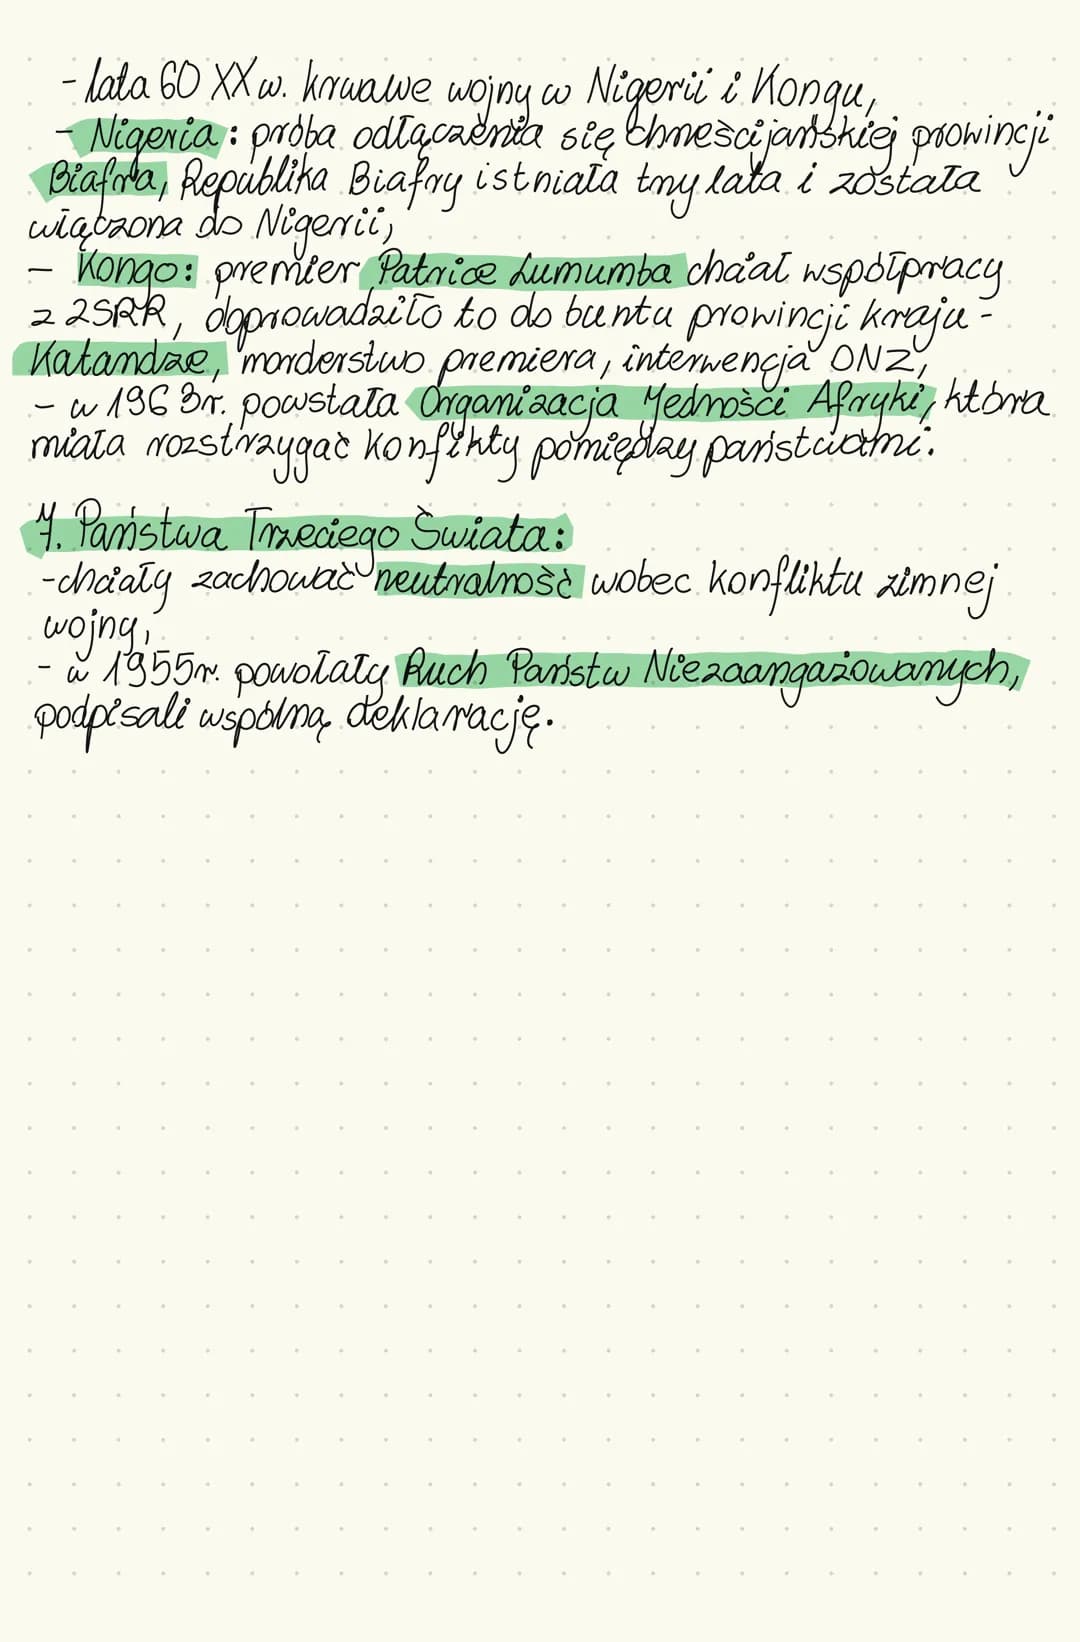 - lata 60 XX w. krwawe wojny w Nigerii i Kongu,
- Nigeria: próba odłączenia się chrześcijańskiej prowincji
Biafra, Republika Biafry istniała trzy lata i została
włączona do Nigerii,
- Kongo: premier Patrice Lumumba chciał współpracy
z ZSRR, doprowadziło to do buntu prowincji kraju -
Katandze, morderstwo premiera, interwencja ONZ,
- w 1963r. powstała Organizacja Jedności Afryki, która
miała rozstrzygać konflikty pomiędzy państwami.
7. Państwa Trzeciego Świata:
- chciały zachować neutralność wobec konfliktu zimnej
wojny,
- w 1955r. powołały Ruch Państw Niezaangażowanych,
podpisali wspólną deklarację.